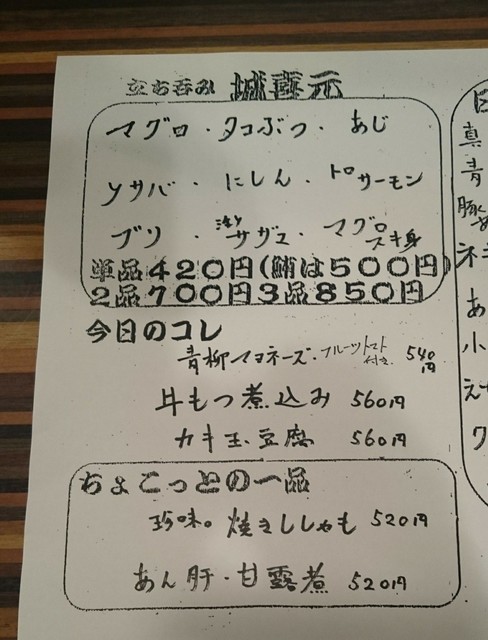 立ち呑み 城喜元
マグロ・タコぶつ・あじ
〆サバ・にしん・トロサーモン
ブリ・活〆サザエ・マグロスキ身
単品420円(鮪は500円)
2品700円3品850円
今日のコレ
青柳マヨネーズ・フルーツトマト付き 540円
牛もつ煮込み 560円
カキ玉豆腐 560円
ちょこっとの一品
珍味。焼きししゃも 520円
あん肝・甘露煮 520円
真
青
豚
ネギ
あ
小